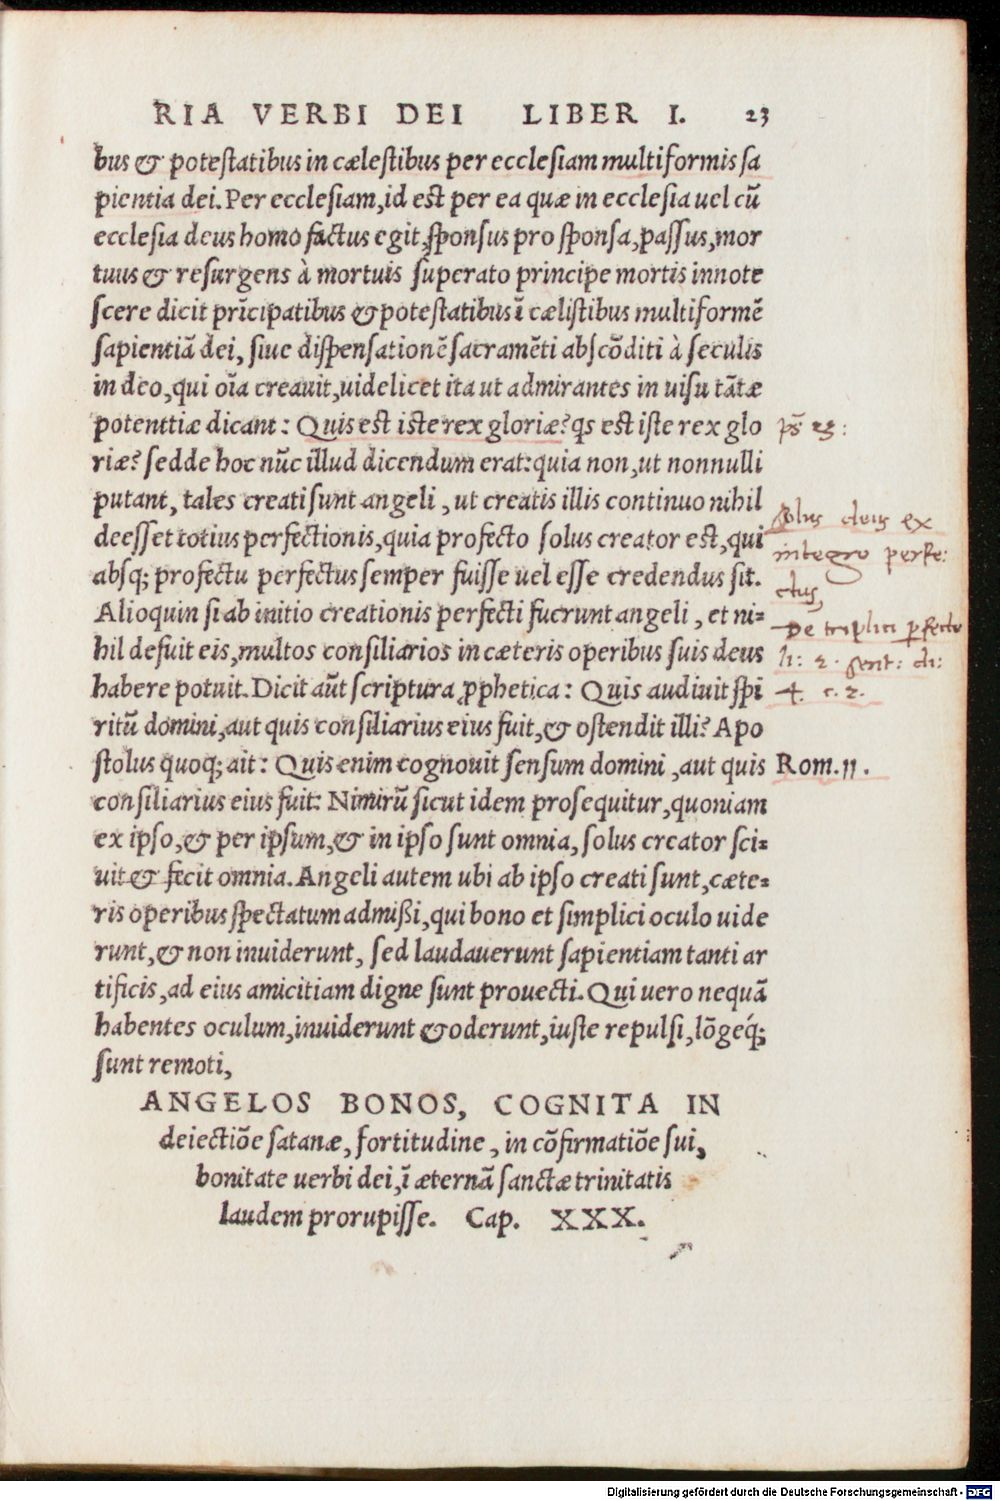 RIA VERBI DEI LIBER I. 23
bus & potestatibus in cælestibus per ecclesiam multiformis sa
pientia dei. Per ecclesiam, id est per ea quæ in ecclesia uel cũ
ecclesia deus homo factus egit, sponsus pro sponsa, passus, mor
tuus & resurgens à mortuis superato principe mortis innote
scere dicit prĩcipatibus & potestatibus ĩ cælistibus multiformẽ
sapientiã dei, siue dispensationẽ sacramẽti abscõditi à seculis
in deo, qui oĩa creauit, uidelicet ita ut admirantes in uisu tãtæ
potenttiæ dicant: Quis est iste rex gloriæ? qs est iste rex glo
riæ? sed de hoc nũc illud dicendum erat: quia non, ut nonnulli
putant, tales creati sunt angeli, ut creatis illis continuo nihil
deesset totius perfectionis, quia profecto solus creator est, qui
absq; profectu perfectus semper fuisse uel esse credendus sit.
Alioquin si ab initio creationis perfecti fuerunt angeli, et ni=
hil defuit eis, multos consiliarios in cæteris operibus suis deus
habere potuit. Dicit aũt scriptura ꝓphetica: Quis audiuit spi
ritũ domini, aut quis consiliarius eius fuit, & ostendit illi? Apo
stolus quoq; ait: Quis enim cognouit sensum domini, aut quis
consiliarius eius fuit: Nimirũ sicut idem prosequitur, quoniam
ex ipso, & per ipsum, & in ipso sunt omnia, solus creator sci=
uit & fecit omnia. Angeli autem ubi ab ipso creati sunt, cæte=
ris operibus spectatum admißi, qui bono et simplici oculo uide
runt, & non inuiderunt, sed laudauerunt sapientiam tanti ar
tificis, ad eius amicitiam digne sunt prouecti. Qui uero nequã
habentes oculum, inuiderunt & oderunt, iuste repulsi, lõgeq́;
sunt remoti,
ANGELOS BONOS, COGNITA IN
deiectiõe satanæ, fortitudine, in cõfirmatiõe sui,
bonitate uerbi dei, ĩ æternã sanctæ trinitatis
laudem prorupisse. Cap. XXX.
ps 23:
solus deus ex
integro perfe:
ctus
De triplici ꝑfecto
li: 2. sent: di:
4. c. 2.
Rom. 11.
Digitalisierung gefördert durch die Deutsche Forschungsgemeinschaft - DFG